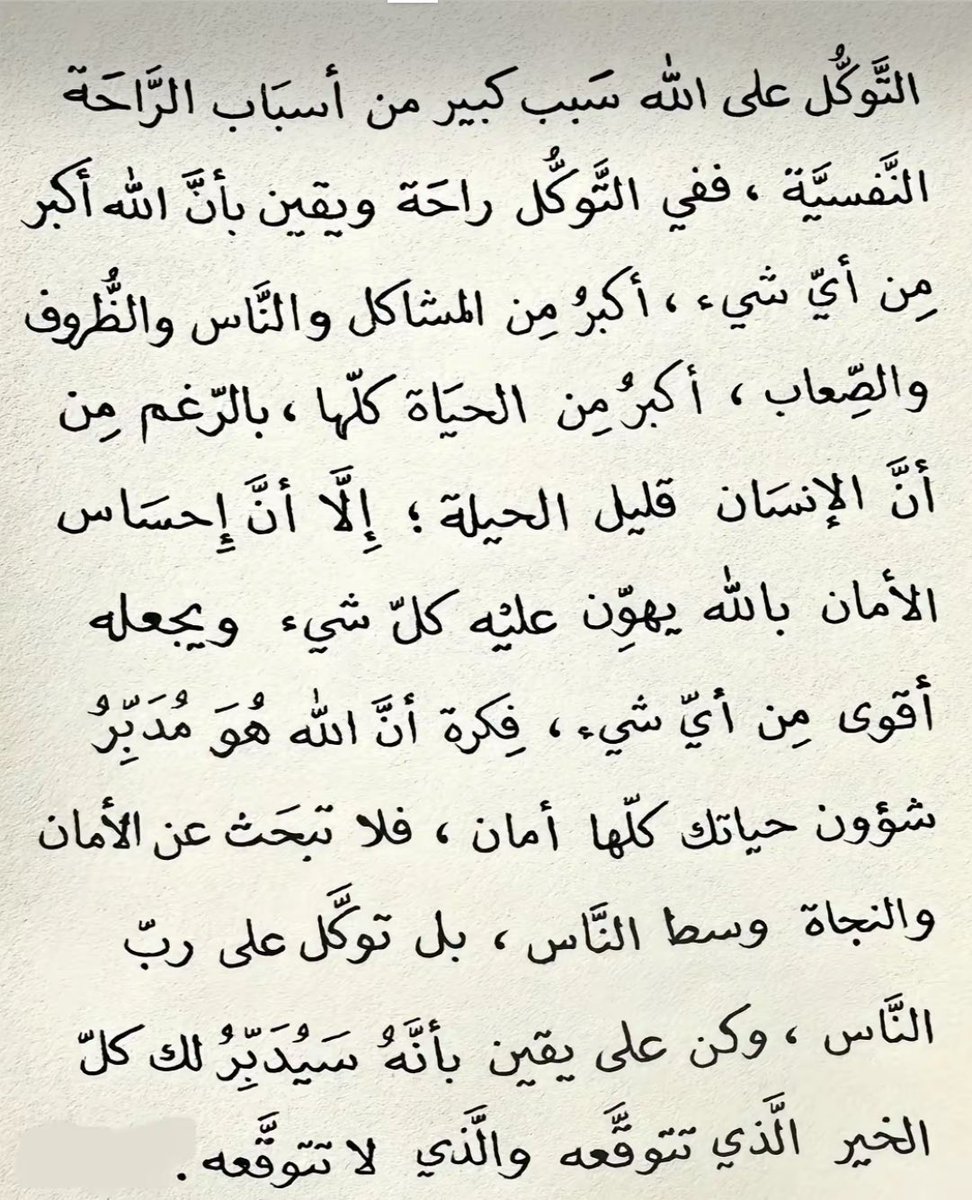 التَّوكُّل على الله سَبب كبير من أسبَاب الرَّاحَة
النَّفسيَّة ، ففي التَّوكُّل راحَة ويقين بأنَّ الله أكبر
مِن أيّ شيء ، أكبرُ مِن المشاكل والنَّاس والظُّروف
والصِّعاب ، أكبرُ مِن الحيَاة كلّها ، بالرّغم مِن
أنَّ الإنسَان قليل الحيلة ؛ إلَّا أنَّ إحسَاس
الأمان بالله يهوِّن عليْه كلّ شيء ويجعله
أقوى مِن أيّ شيء ، فِكرة أنَّ الله هُوَ مُدَبِّرُ
شؤون حياتك كلّها أمان ، فلا تبحَث عن الأمان
والنجاة وسط النَّاس ، بل توكَّل على ربّ
النَّاس ، وكن على يقين بأنَّهُ سَيُدَبِّرُ لك كلّ
الخير الَّذي تتوقَّعه والَّذي لا تتوقَّعه .